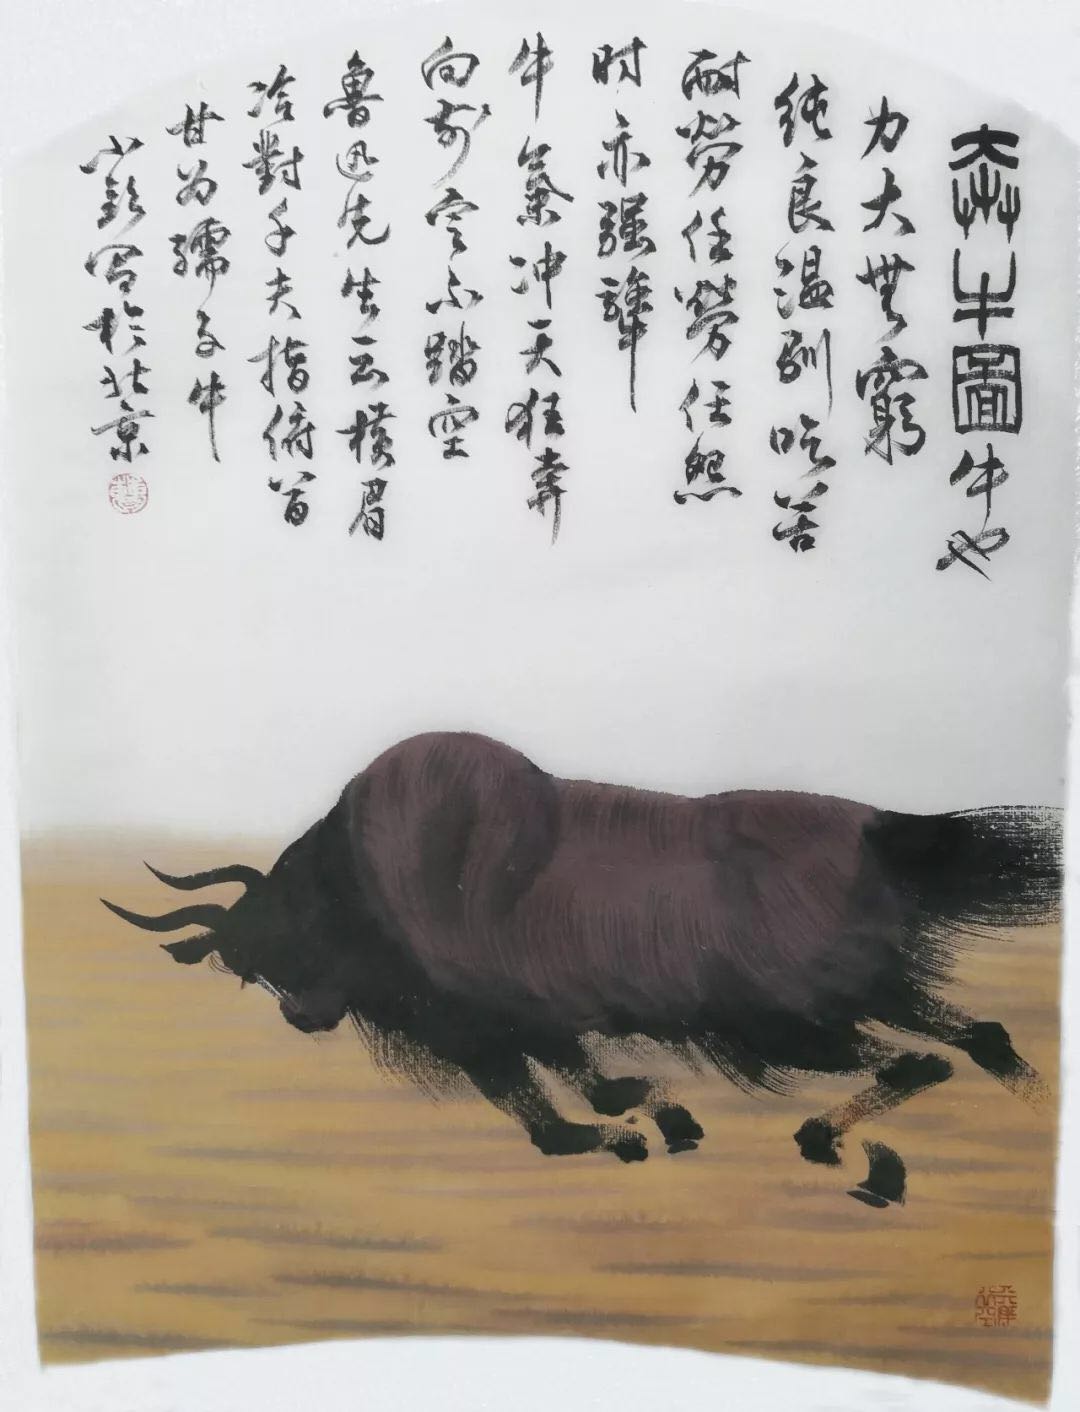 奔牛圖牛也
力大無窮
純良温馴吃苦
耐勞任勞任怨
时亦强犟
牛氣冲天狂奔
向前定不踏空
魯迅先生云横眉
冷對千夫指俯首
甘为孺子牛
小 写於北京